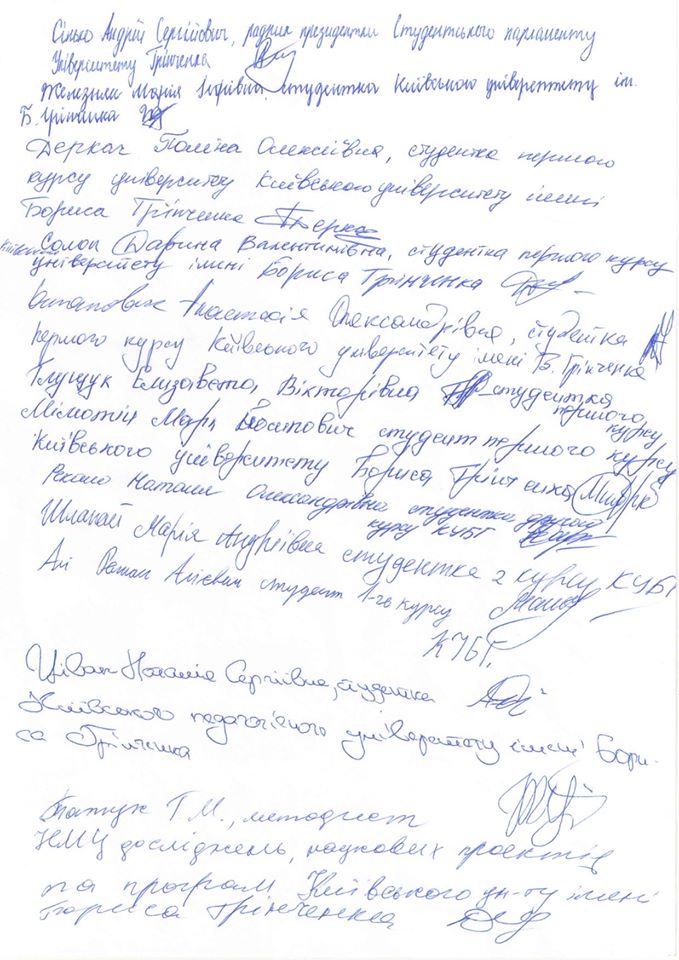 Сінько Андрій Сергійович, радник президентки Студентського парламенту
Університету Грінченка
Марія студентка Київського університету ім.
Б. Грінченка
Деркач Поліна Олексіївна, студентка першого
курсу університету Київського університету імені
Бориса Грінченка
Солоп Дарина Валентинівна, студентка першого курсу
Київського університету імені Бориса Грінченка
Анастасія Олександрівна, студентка
першого курсу Київського університету імені Б. Грінченка
Глущук Єлизавета Вікторівна студентка
першого курсу
Марк студент першого курсу
Київського університету Бориса Грінченка
Наталя Олександрівна студентка другого
курсу КУБГ
Марія Андріївна студентка 2 курсу КУБГ
Алі Алієвич студент 1-го курсу
КУБГ.
Наталія Сергіївна, студентка
Київського педагогічного університету імені Бори-
са Грінченка
Т.М., методист
НМЦ досліджень, наукових проектів
та програм Київського ун-ту імені
Бориса Грінченка